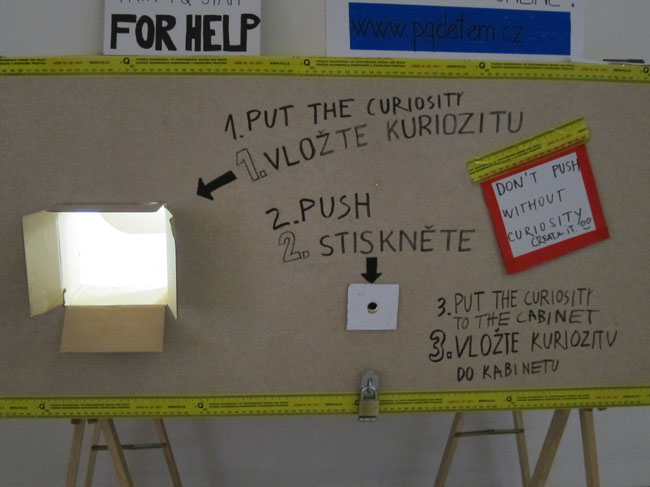 FOR HELP
www.pqdetem.cz
1. PUT THE CURIOSITY
1. VLOŽTE KURIOZITU
2. PUSH
2. STISKNĚTE
DON'T PUSH
WITHOUT
CURIOSITY
CREATE IT.
3. PUT THE CURIOSITY
TO THE CABINET
3. VLOŽTE KURIOZITU
DO KABINETU